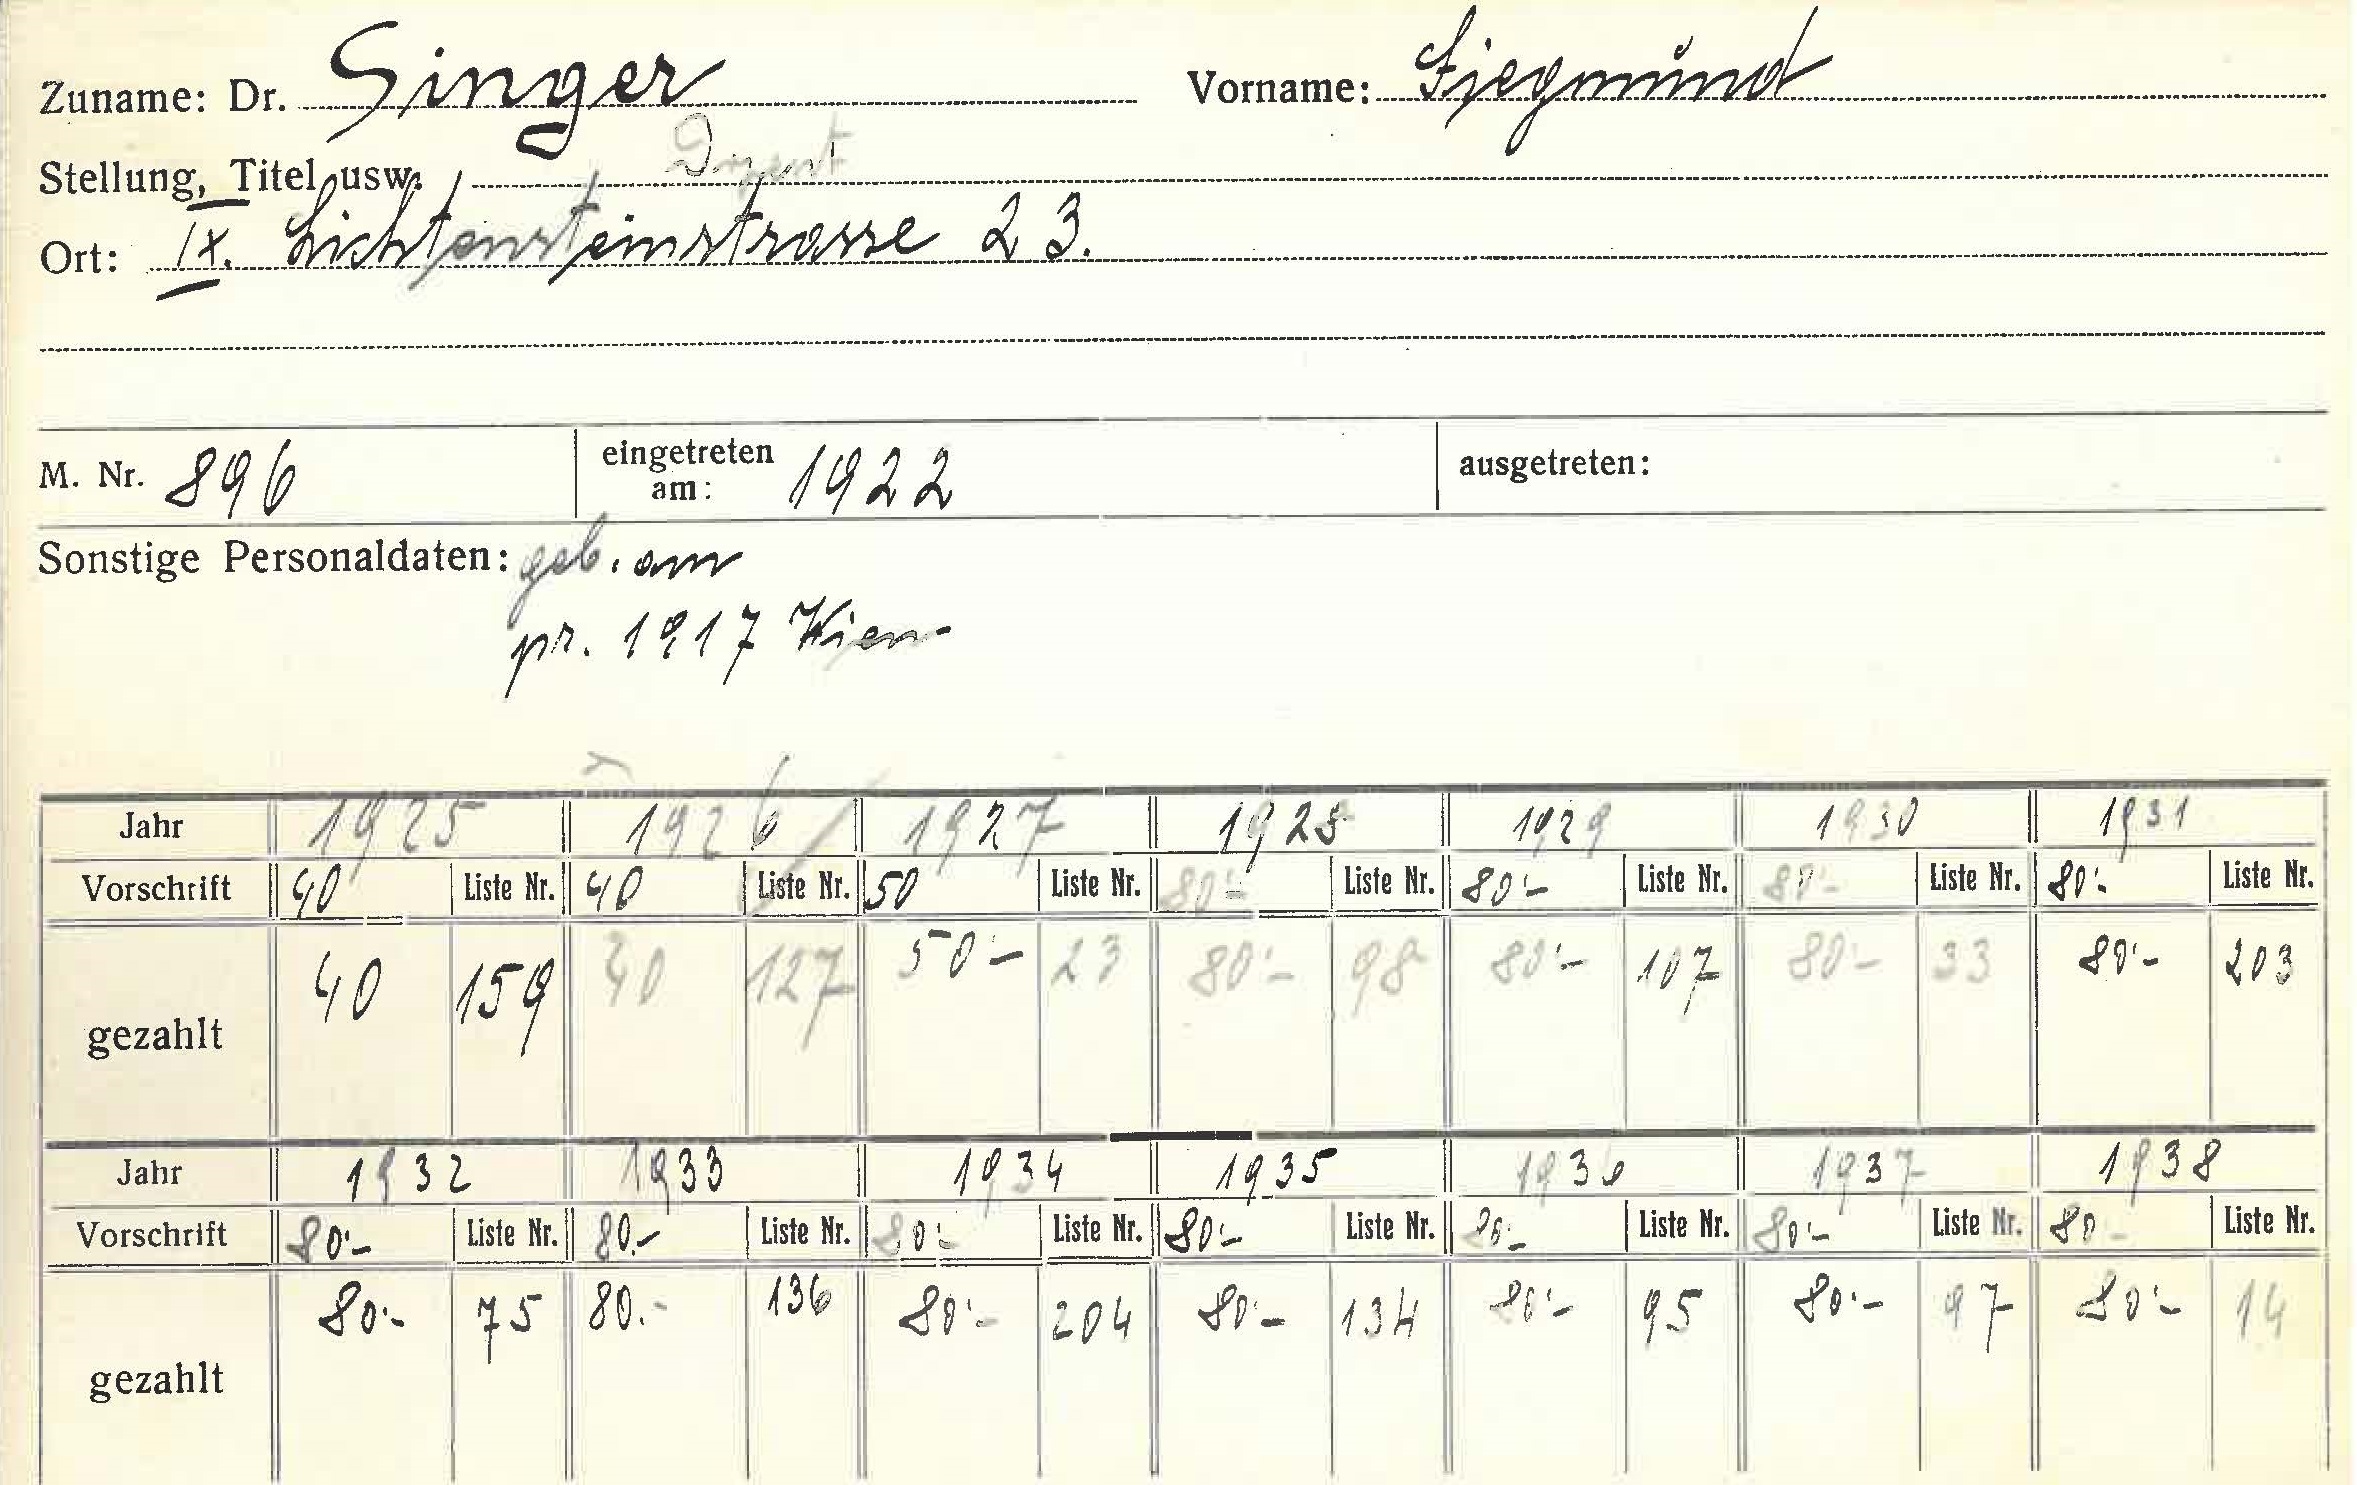 Zuname: Dr. Singer Vorname: Siegmund
Stellung, Titel usw. Dozent
Ort: IX. Lichtensteinstrasse 23.
M. Nr. 896 eingetreten am: 1922 ausgetreten:
Sonstige Personaldaten: geb. am
pr. 1917 Wien
Jahr 1925 1926 1927 1928 1929 1930 1931
Vorschrift 40 Liste Nr. 40 Liste Nr. 50 Liste Nr. 80·- Liste Nr. 80·- Liste Nr. 80·- Liste Nr. 80·- Liste Nr.
gezahlt 40 159 40 127 50·- 23 80·- 98 80·- 107 80·- 33 80·- 203
Jahr 1932 1933 1934 1935 1936 1937 1938
Vorschrift 80·- Liste Nr. 80.- Liste Nr. 80·- Liste Nr. 80·- Liste Nr. 80·- Liste Nr. 80·- Liste Nr. 80- Liste Nr.
gezahlt 80·- 75 80.- 136 80·- 204 80·- 134 80·- 95 80·- 97 80·- 14